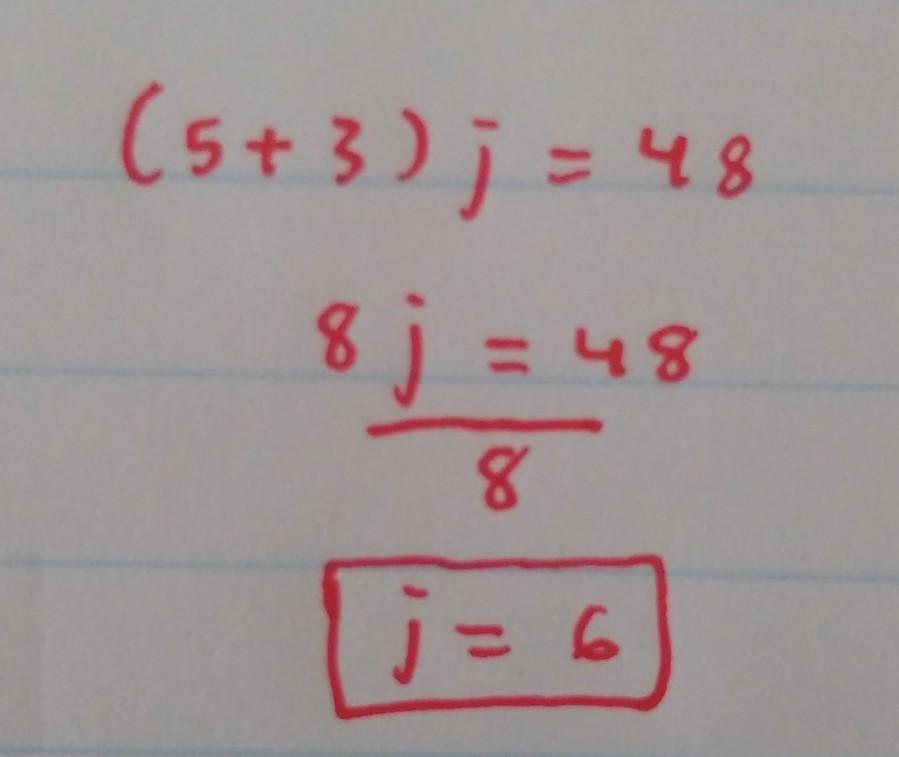 (5+3)j = 48
8j = 48
8
j = 6